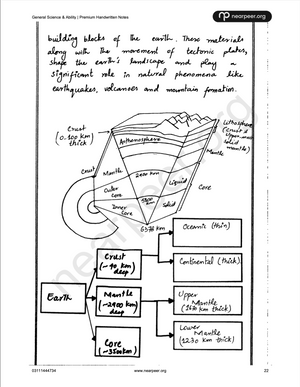 General Science & Ability | Premium Handwritten Notes
nearpeer.org
building blocks of the earth. These materials
along with the movement of tectonic plates,
shape the earth's landscape and play a
significant role in natural phenomena like
earthquakes, volcanoes and mountain formation.
Crust
(0-100 km)
thick
Lithosphere
(crust &
upper most
solid
mantle)
Asthenosphere
Crust
Mantle
2900 km
Mantle
Outer
core
Liquid
Core
Inner
core
Solid
6378 km
Earth
Crust
(~40 km)
deep
Oceanic (thin)
Continental (thick)
Mantle
(~2900 km)
deep
Upper
Mantle
Lower
Mantle
Core
(~3500km)
nearpeer.org
03111444734
www.nearpeer.org
22